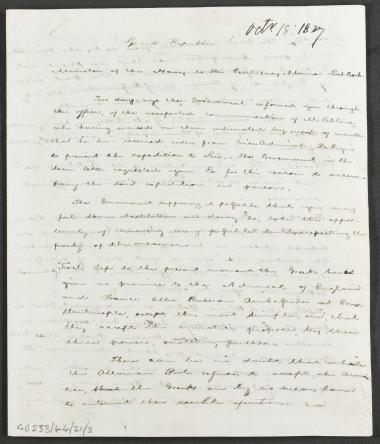 Octr 18 1827
Greek Republic
Minister of the Navy to His Excellency Admiral Lord Coch
Two days ago the Government informed you through
this office, of the unexpected communication of M. Le Blanc
who having waited on them intimated by word of mouth
that he had received orders from Vice Admiral De Rigny
to prevent the expedition to Scio. The Government in the
same letter requested your Ex for this reason to accom-
pany the said expedition in person.
The Government supposing it possible that you may
feel some hesitation and
of removing every
of the
First. Up to the present moment the Greeks have
given no promise to the Admirals of England
and France or the Russian Ambassador at Cons
tantinople, except this most simple one, that
they accept the armistice proposed by these
three powers,
There can be no doubt that while
the Ottoman Porte refuses to accept the Armis
tice, that the Greeks are by no means bound
to interrupt their warlike operations
GD233/44/21/3